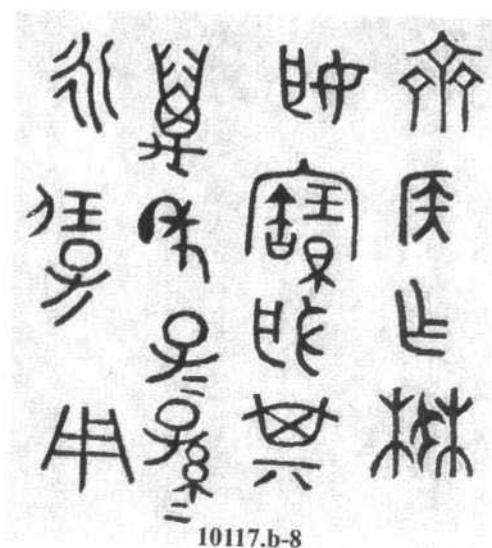 齊侯乍楙
姬寶般其
萬年子=孫=
永保用
10117.b-8